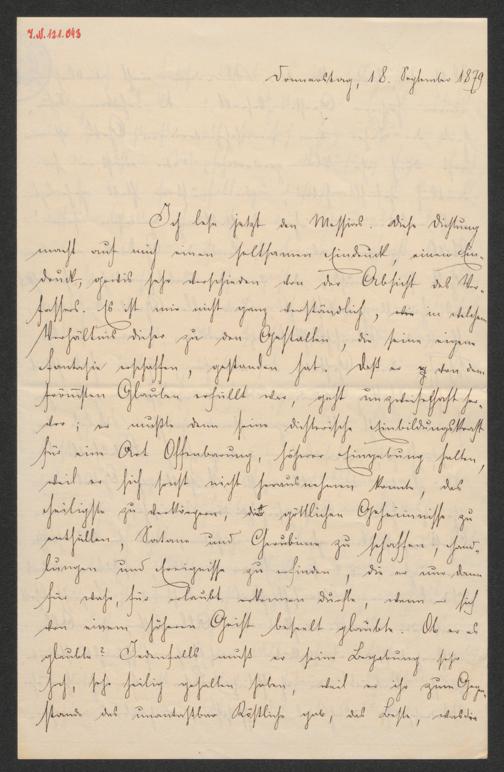 I.N. 121.043
Donnerstag, 18. September 1879
Ich lese jetzt den Messias. Diese Dichtung
macht auf mich einen seltsamen Eindruck, einen Ein-
druck, gewis sehr verschieden von der Absicht des Ver-
fassers. Es ist mir nicht ganz verständlich, wie in welchem
Verhältnis dieser zu den Gestalten, die seine eigene
Fantasie erschaffen, gestanden hat. Daß er von dem
frömsten Glauben erfüllt war, geht unzweifelhaft her-
vor; er mußte denn seine dichterische Einbildungskraft
für eine Art Offenbarung, höherer Eingebung halten,
weil er sich sonst nicht herausnehmen konnte, das
Heiligste zu verkörpern, die göttlichen Geheimnisse zu
enthüllen, Satane und Cherubime zu schaffen, Hand-
lungen und Ereignisse zu erfinden, die er nur dann
für wahr, für erlaubt erkennen durfte, wenn er sich
von einem höheren Geist beseelt glaubte. Ob er es
glaubte? Jedenfalls muß er seine Begabung sehr
hoch, sehr heilig gehalten haben, weil er ihr zum Gegen-
stande das unantastbar Köstliche gab, das Beste, was die